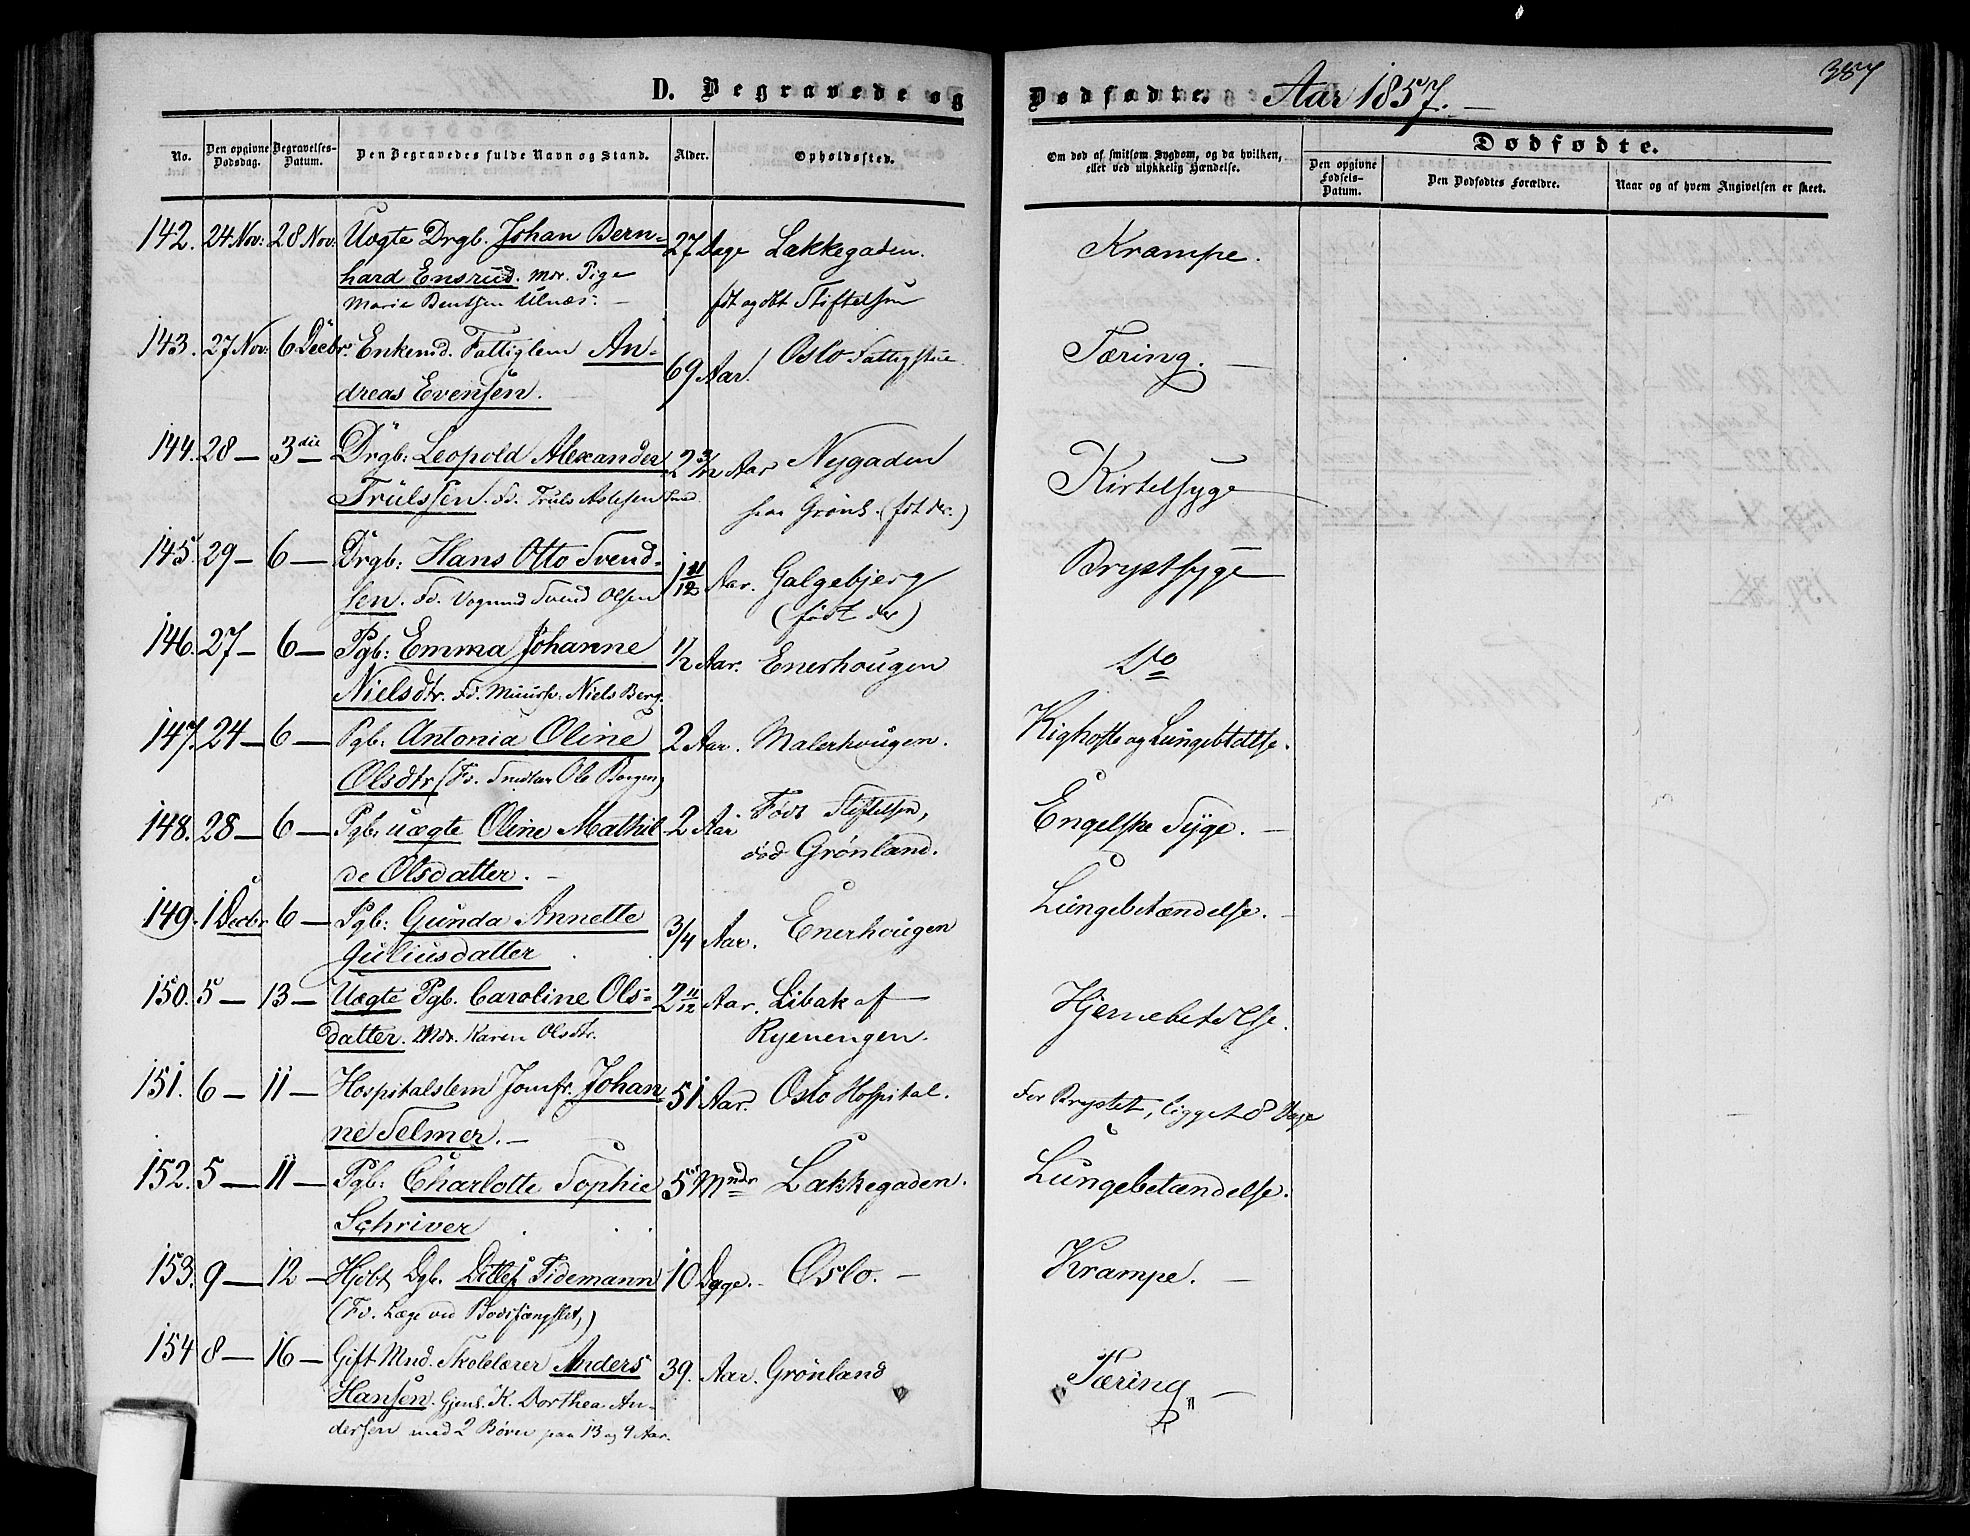 387
D. Begravede og Dødfødte. Aar 1857.
No. Den opgivne Dødsdag. Begravelses-Datum. Den Begravedes fulde Navn og Stand. Alder. Opholdssted. Om død af smitsom Sygdom, og da hvilken, eller ved ulykkelig Hændelse.
Dødfødte.
Den opgivne Fødsels-Datum. Den Dødfødtes Forældre. Naar og af hvem Angivelsen er skeet.
142. 24 Nov: 28 Nov: Uægte Drgb. Johan Bern- 27 Dage Lakkegaden. Krampe.
hard Ensrud. Mdr. Pige
Marie Bentsen Ulnæs. fdt og dbt Stiftelsen
143. 27 Nov: 6 Decbr. Enkemd. Fattiglem An- 69 Aar. Oslo Fattigstue Tæring.
dreas Evensen.
144. 28 — 3die Drgb: Leopold Alexander 2 3/12 Aar Nygaden Kirtelsyge
Trulssen. Fd. Truls Aslesen paa Grønl. (fdt der.)
145. 29 — 6 — Drgb: Hans Otto Svend- 1 11/12 Aar. Galgebjerg Brystsyge
sen. Fd. Vognmd Svend Olsen (født der)
146. 27 — 6 — Pgb: Emma Johanne 1/2 Aar. Enerhougen Do
Nielsdtr. Fd. Muursv: Niels Berg.
147. 24 — 6 — Pgb: Antonia Oline 2 Aar. Malerhougen. Kighoste og Lungebtdlse.
Olsdtr (Fd. Ole Borgen)
148. 28 — 6 — Pgb: uægte Oline Mathil- 2 Aar Født Stiftelsen, Engelske Syge.
de Olsdatter. død Grønland.
149. 1 Decbr 6 — Pgb: Gunda Annette 3/4 Aar. Enerhougen Lungebetændelse.
Juliusdatter
150. 5 — 13 — Uægte Pgb. Caroline Ols- 2 11/12 Aar. Libak af Hjernebetdlse.
datter. Mdr. Karen Olsdtr. Ryenengen.
151. 6 — 11 — Hospitalslem Jomfr. Johan- 51 Aar. Oslo Hospital. For Brystet, ligget 8 Dage
ne Selmer.
152. 5 — 11 — Pgb: Charlotte Sophie 5 Mndr Lakkegaden. Lungebetændelse.
Schriver
153. 9 — 12 — Hjdbt Dgb. Ditlef Tidemann 10 Dage. Oslo. Krampe.
(Fd. Læge ved Bodsfængslet,)
154 8 — 16 — Gift Mnd. Skolelærer Anders 39. Aar. Grønland Tæring
Hansen. Gjenl. K. Dorthea An-
dersen med 2 Børn paa 13 og 9 Aar.